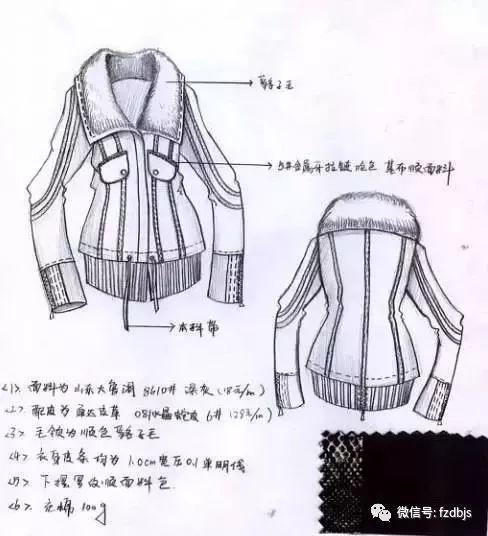 貉子毛
5#金属牙拉链 哈色 基布顺面料
本料带
<1> 面料为山东大鲁阁 8610# 深灰 (18元/m)
<2> 配皮为 皮革 081水晶蛇皮 6# (29元/m)
<3> 毛领为顺色貉子毛
<4> 衣身皮条均为1.0cm宽压0.1单明线
<5> 下摆罗纹顺面料色.
<6> 充棉100g
微信号: fzdbjs